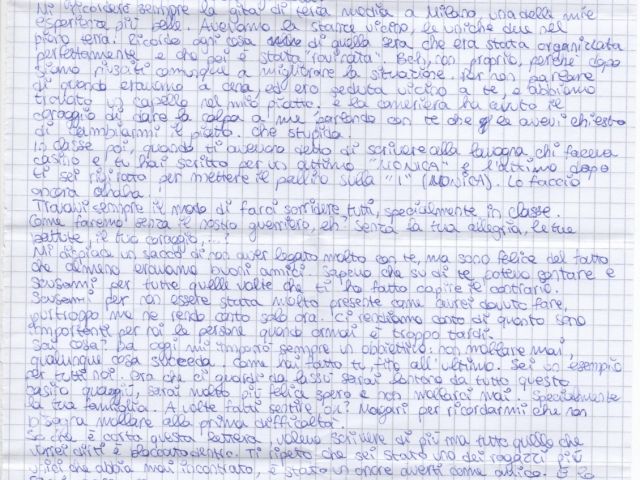 Mi ricorderò sempre la gita di terza media a Milano una delle mie
esperienze più belle. Avevamo le stanze vicino, le uniche due nel
piano terra. Ricordo ogni cosa di quella sera che era stata organizzata
perfettamente e che poi è stata "rovinata". Beh, non proprio, perché dopo
siamo riusciti comunque a migliorare la situazione. Per non parlare
di quando eravamo a cena, ed ero seduta vicino a te, e abbiamo
trovato un capello nel mio piatto. E la cameriera ha avuto il
coraggio di dare la colpa a me parlando con te che le avevi chiesto
di cambiarmi il piatto. Che stupida.
In classe poi, quando ti avevano detto di scrivere alla lavagna chi faceva
casino e tu hai scritto per un attimo "MONICA" e l'attimo dopo
ti sei rigirato per mettere il pallino sulla "I" (MONiCA). Lo faccio
ancora ahaha!
Trovavi sempre il modo di farci sorridere tutti, specialmente in classe.
Come faremo senza il nostro guerriero, eh? Senza la tua allegria, le tue
battute, il tuo coraggio,...?
Mi dispiace un sacco di non aver legato molto con te, ma sono felice del fatto
che almeno eravamo buoni amici. Sapevo che su di te potevo contare e
scusami per tutte quelle volte che ti ho fatto capire il contrario.
Scusami per non essere stata molto presente come avrei dovuto fare,
purtroppo me ne rendo conto solo ora. Ci rendiamo conto di quanto sono
importanti per noi le persone quando ormai è troppo tardi.
Sai cosa? Da oggi mi imporrò sempre un obbiettivo: non mollare mai,
qualunque cosa succeda. Come hai fatto te, fino all'ultimo. Sei un esempio
per tutti noi. Ora che ci guardi da lassù sarai lontano da tutto questo
quaggiù, sarai molto più felice spero e non lasciarci mai. Specialmente
la tua famiglia. A volte fatti sentire, ok? Magari per ricordarmi che non
bisogna mollare alla prima difficoltà.
So che è corta questa lettera, volevo scrivere di più ma tutto quello che
vorrei dirti è bloccato dentro. Ti ripeto che sei stato uno dei ragazzi più
che abbia mai incontrato, è stato un onore averti come amico. E so